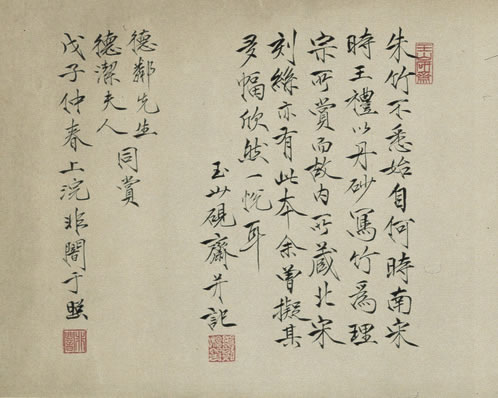 朱竹不悉始自何時南宋
時王禮以丹砂寫竹為理
宗所賞而故内所藏北宋
刻絲亦有此本余曾擬其
多幅欣然一悅耳
玉山硯齋并記
德鄰先生
德潔夫人
同賞
戊子仲春上浣非闇于照